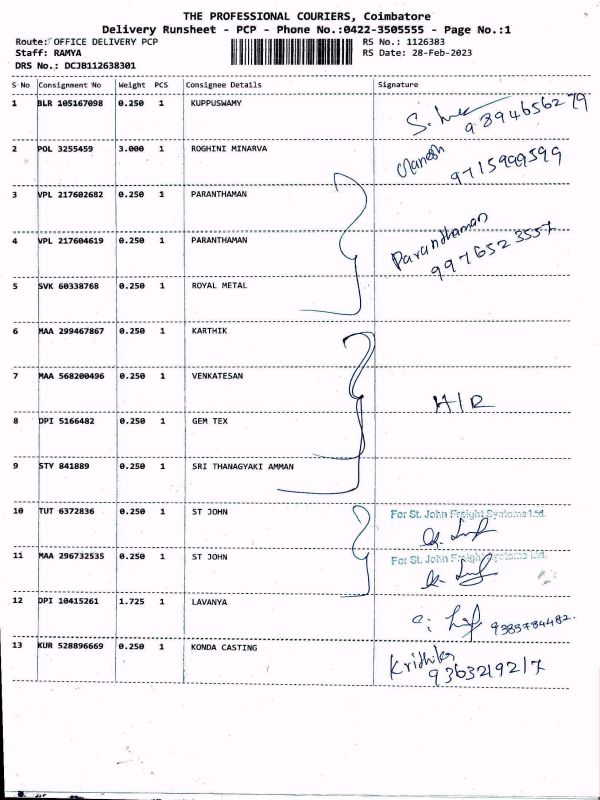 THE PROFESSIONAL COURIERS, Coimbatore
Delivery Runsheet - PCP - Phone No.:0422-3505555 - Page No.:1
Route: OFFICE DELIVERY PCP RS No.: 1126383
Staff: RAMYA RS Date: 28-Feb-2023
DRS No.: DCJB112638301
S No Consignment No Weight PCS Consignee Details Signature
1 BLR 105167098 0.250 1 KUPPUSWAMY
9894656279
2 POL 3255459 3.000 1 ROGHINI MINARVA Manesh
9715999599
3 VPL 217602682 0.250 1 PARANTHAMAN
4 VPL 217604619 0.250 1 PARANTHAMAN Parandhaman
9976523557
5 SVK 60338768 0.250 1 ROYAL METAL
6 MAA 299467867 0.250 1 KARTHIK
7 MAA 568200496 0.250 1 VENKATESAN
H/R
8 DPI 5166482 0.250 1 GEM TEX
9 STY 841889 0.250 1 SRI THANAGYAKI AMMAN
10 TUT 6372836 0.250 1 ST JOHN For St. John Freight Systems Ltd.
11 MAA 296732535 0.250 1 ST JOHN For St. John Freight Systems Ltd.
12 DPI 10415261 1.725 1 LAVANYA
9385784482.
13 KUR 528896669 0.250 1 KONDA CASTING Krithika
9363219217